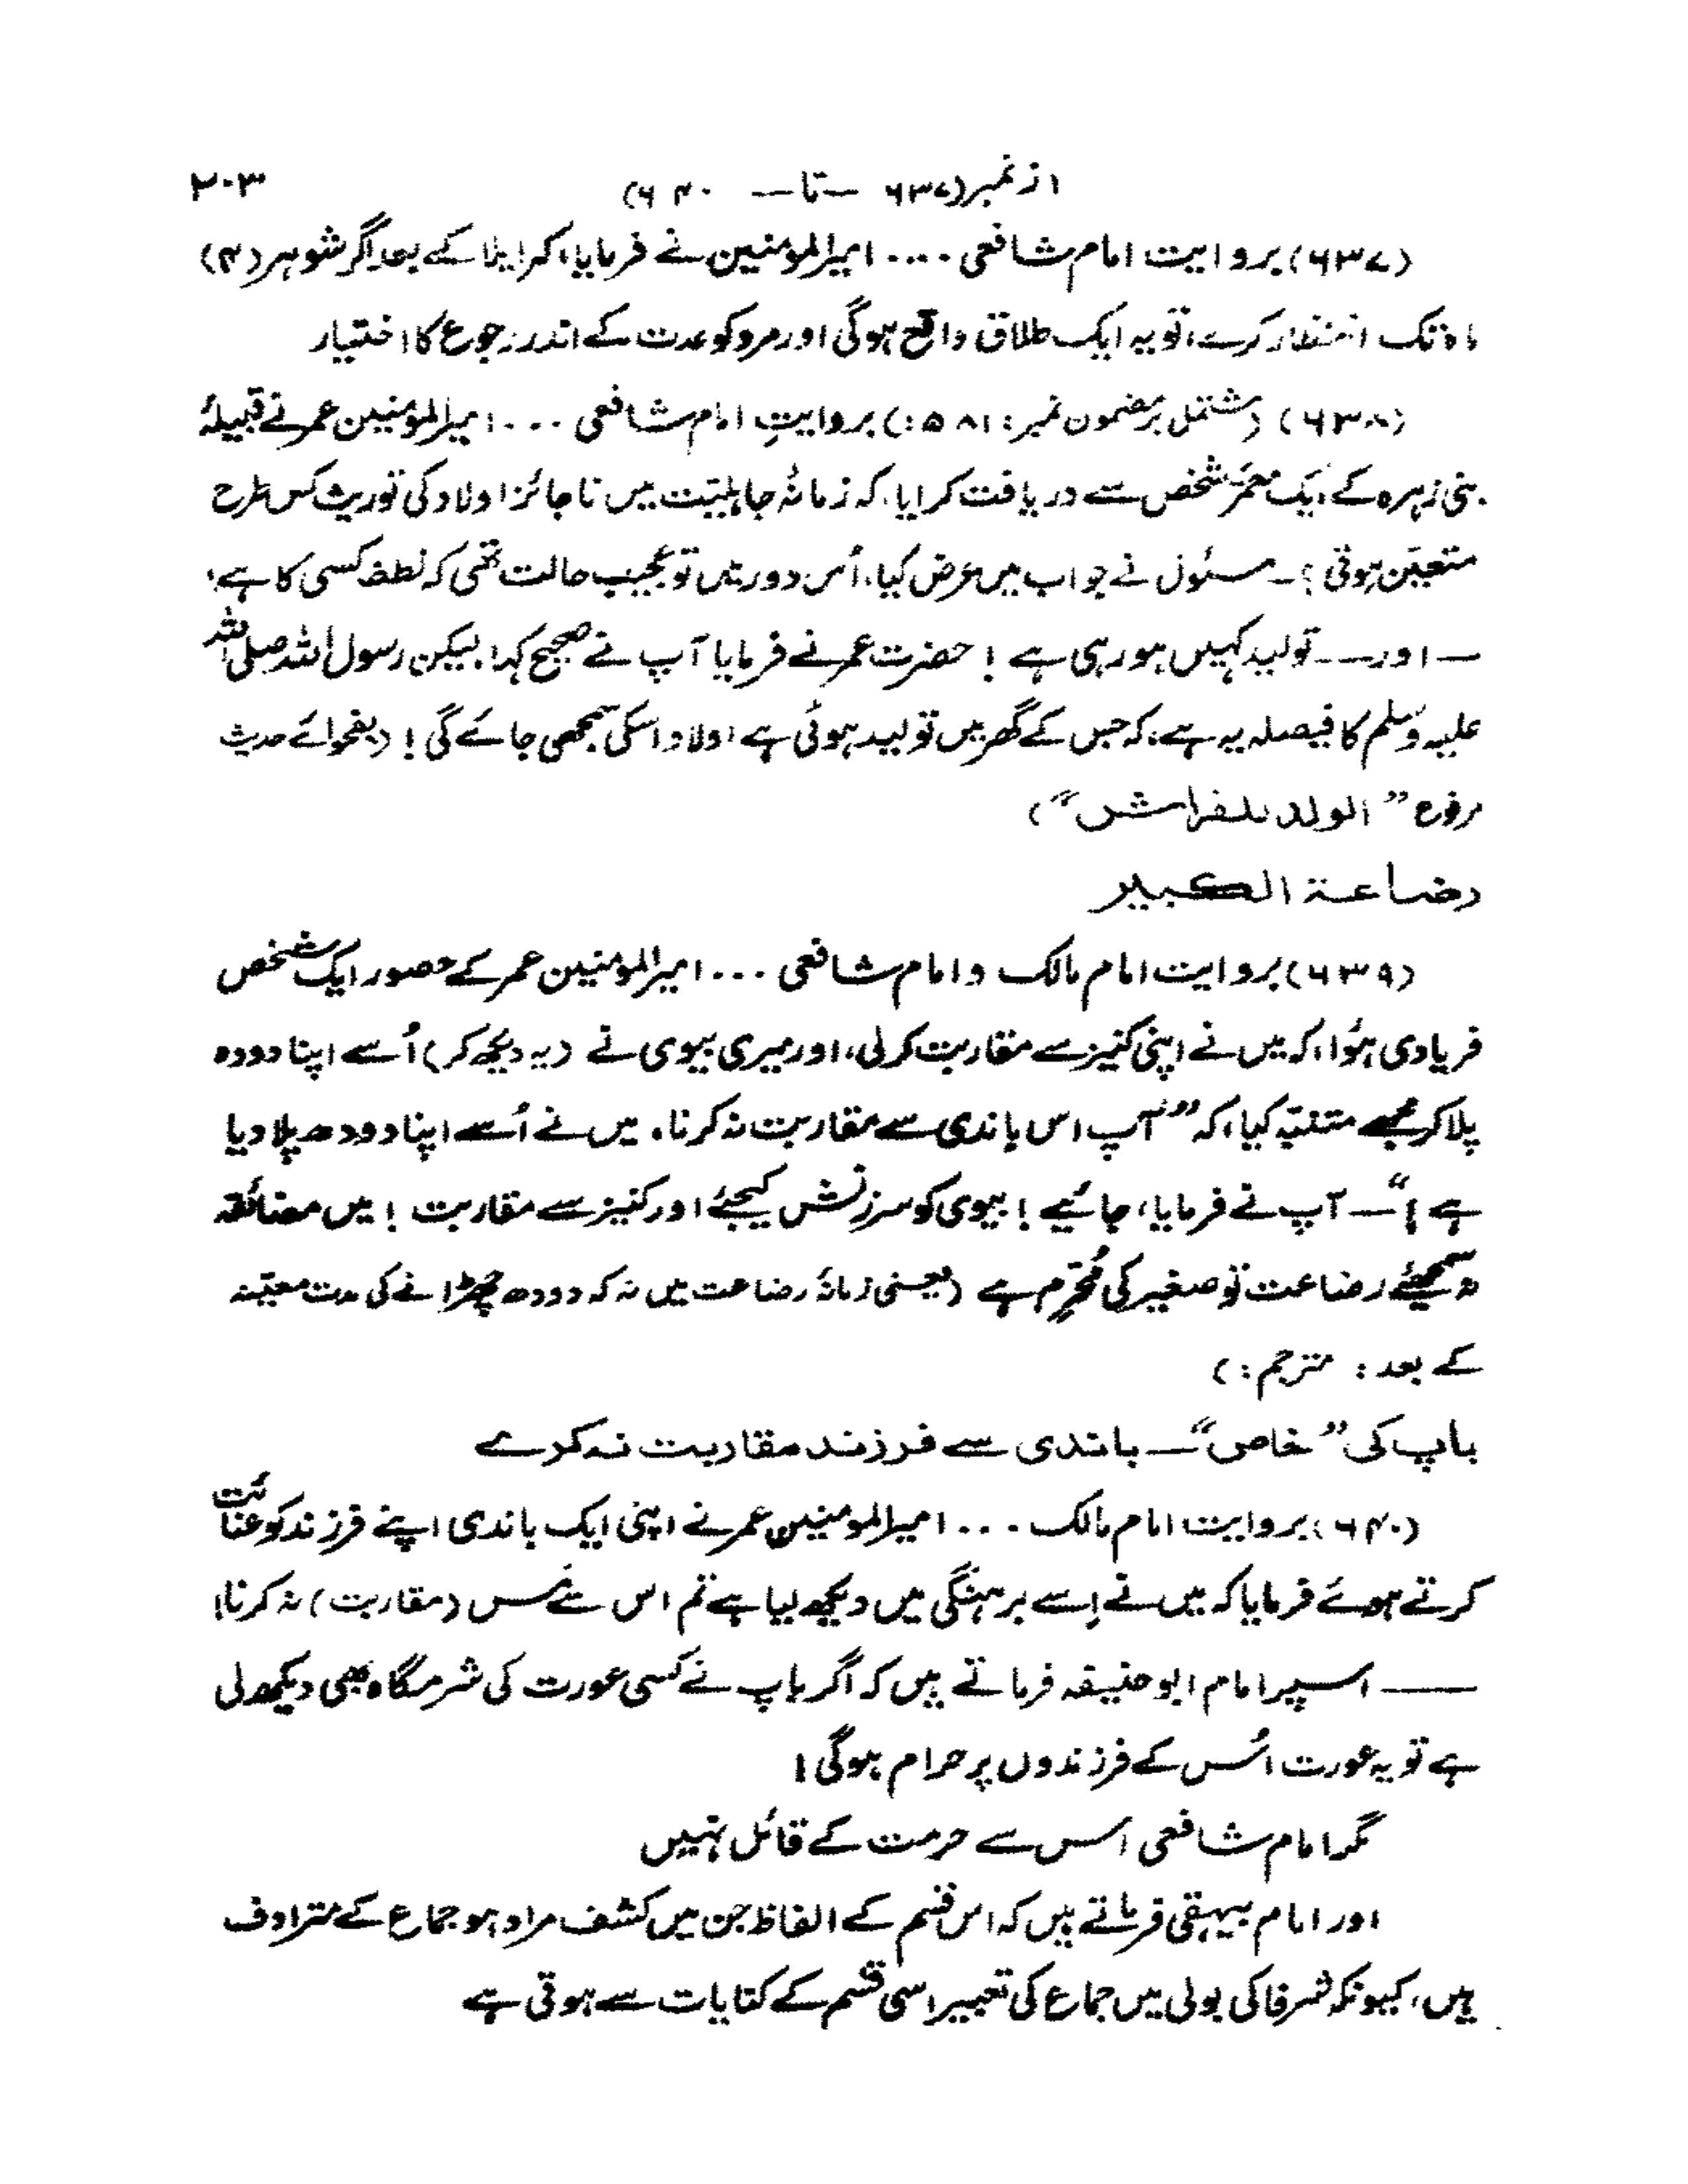 از نمبر (۶۳۷ — تا — ۶۴۰) ۲۰۳
(۶۳۷) بروایت امام شافعی .... امیرالمؤمنین نے فرمایا، کہ ایلا کے بعد اگر شوہر (۴)
ماہ تک انتظار کرے، تو یہ ایک طلاق واقع ہوگی اور مرد کو عدت کے اندر رجوع کا اختیار
(۶۳۸) (مشتمل بر مضمون نمبر: ۵۸۱:) بروایتِ امام شافعی ... امیرالمؤمنین عمر نے قبیلۂ
بنی زہرہ کے ایک معمّر شخص سے دریافت کرایا، کہ زمانۂ جاہلیّت میں ناجائز اولاد کی توریث کس طرح
متعیّن ہوتی؟ ـ مسئول نے جواب میں عرض کیا، اُس دور میں تو عجیب حالت تھی کہ نطفہ کسی کا ہے،
— اور — تولید کہیں ہو رہی ہے! حضرت عمر نے فرمایا آپ نے صحیح کہا، لیکن رسول اللہ صلی اللہ
علیہ وسلم کا فیصلہ یہ ہے، کہ جس کے گھر میں تولید ہوئی ہے اولاد اسکی سمجھی جائے گی! (بفحوائے حدیث
مرفوع ”الولد للفراش“)
رضاعۃ الکبیر
(۶۳۹) بروایت امام مالک و امام شافعی ... امیرالمومنین عمر کے حضور ایک شخص
فریادی ہؤا، کہ میں نے اپنی کنیز سے مقاربت کر لی، اور میری بیوی نے (یہ دیکھ کر) اُسے اپنا دودہ
پلا کر مجھے متنبّہ کیا، کہ ”آپ اس باندی سے مقاربت نہ کرنا، میں نے اُسے اپنا دودھ پلا دیا
ہے!“ — آپ نے فرمایا، جائیے! بیوی کو سرزنش کیجئے اور کنیز سے مقاربت! میں مضائقہ
نہ سمجھیئے رضاعت تو صغیر کی مُحَرِّم ہے (یعنی زمانۂ رضاعت میں نہ کہ دودھ چھڑانے کی مدت معیّنہ
کے بعد: مترجم:)
باپ کی ”خاص“ — باندی سے فرزند مقاربت نہ کرے
(۶۴۰) بروایت امام مالک ... امیرالمومنین عمر نے اپنی ایک باندی اپنے فرزند کو عنائت
کرتے ہوئے فرمایا کہ میں نے اِسے برہنگی میں دیکھ لیا ہے تم اس سے مَس (مقاربت) نہ کرنا!
— اسپر امام ابو حنیفہ فرماتے ہیں کہ اگر باپ نے کسی عورت کی شرمگاہ بھی دیکھ لی
ہے تو یہ عورت اُس کے فرزندوں پر حرام ہوگی!
مگر امام شافعی اس سے حرمت کے قائل نہیں
اور امام بیہقی فرماتے ہیں کہ اس قسم کے الفاظ جن میں کشف مراد ہو جماع کے مترادف
ہیں، کیونکہ شرفا کی بولی میں جماع کی تعبیر اسی قسم کے کنایات سے ہوتی ہے